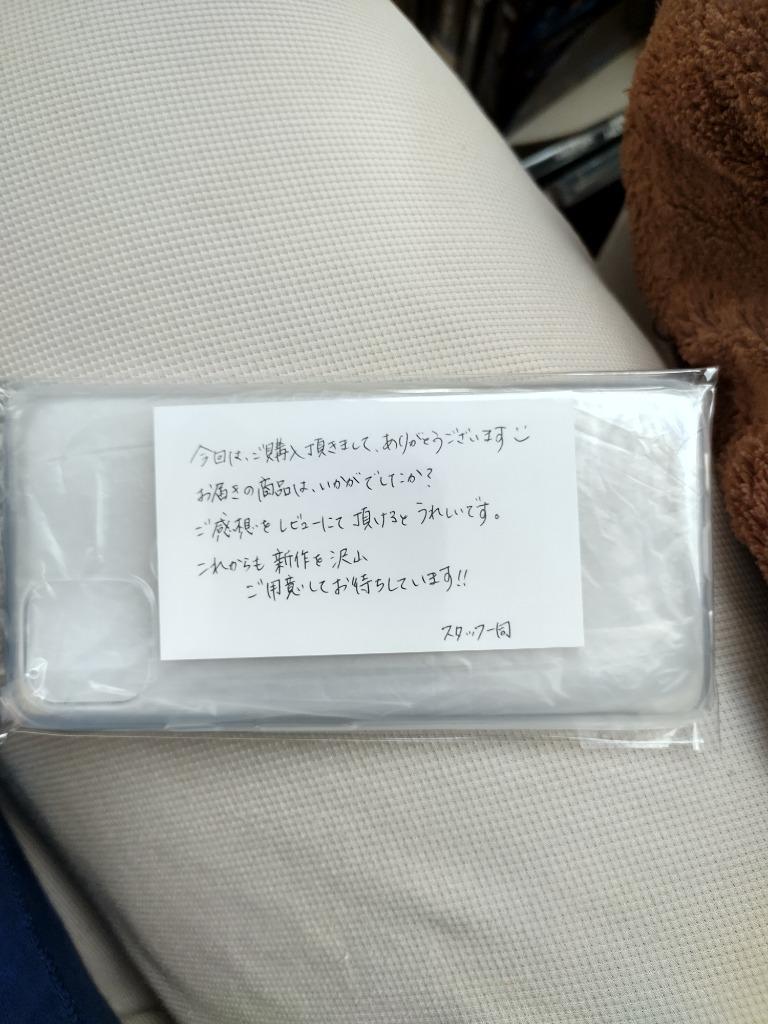 今回は、ご購入頂きまして、ありがとうございます
お届きの商品は、いかがでしたか?
ご感想をレビューにて頂けるとうれしいです。
これからも新作を沢山
ご用意してお待ちしています!!
スタッフ一同